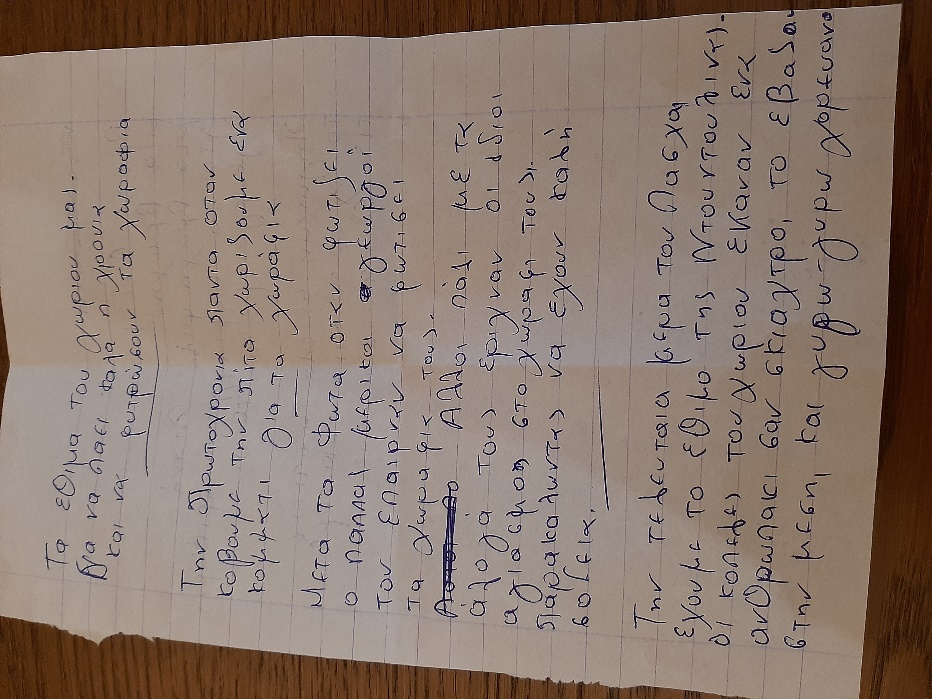 Τα εθιμα του χωριου μας.
Για να πάει καλα η χρονια
και να φυτρώσουν τα χωραφια
Την Πρωτοχρονια παντα οταν
κοβουμε την πίτα χωρίζουμε ένα
κομματι για τα χωράφια
Μετα τα φωτα οταν φωτιζει
ο παππας μερικοι γεωργοί
τον επαιρναν να φωτισει
τα χωραφια τους.
Αλλοι πάλι με τα
άλογα τους εριχναν οι ίδιοι
αγιασμο στο χωράφι τους.
παρακαλωντας να έχουν καλή
σοδεια.
Την τελευταία μερα του Πασχα
εχουμε το εθιμο της Ντουντουλιντς.
Οι κοπελες του χωριου εκαναν ενα
ανθρωπακι σαν σκιαχτρο, το εβαζαν
στην μεση και γυρω-γυρω χορευανε